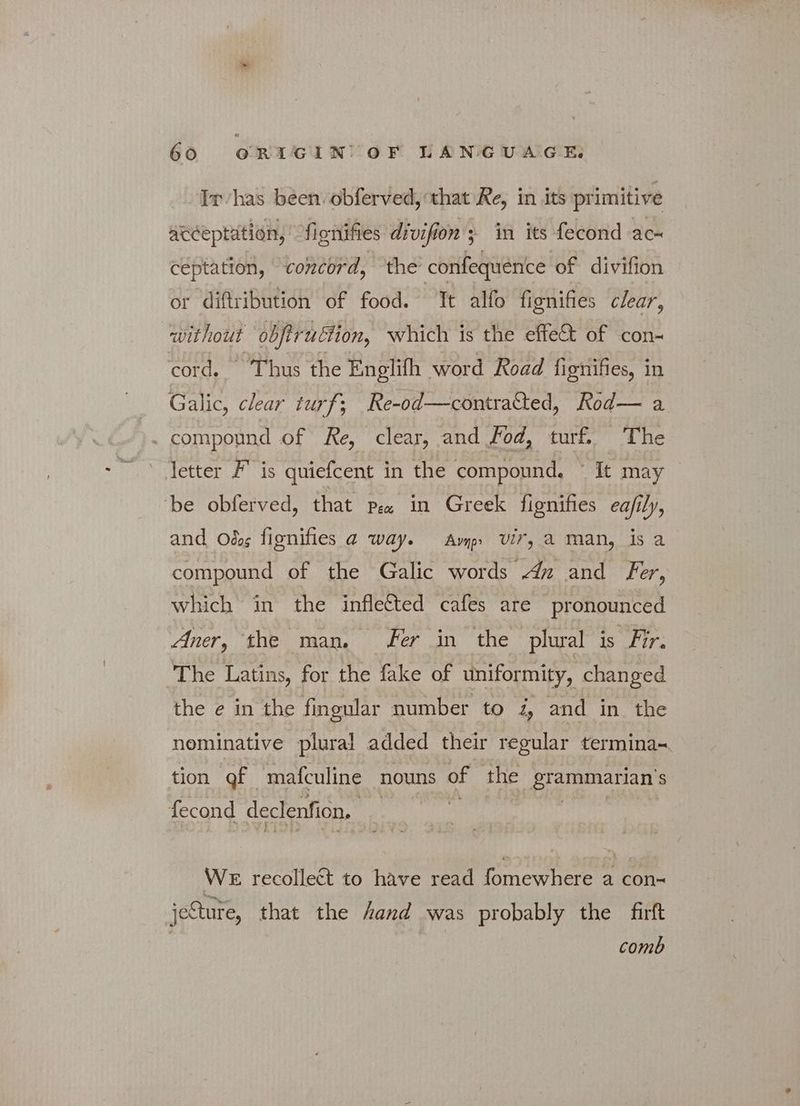 60 ORIGIN OF LANGUAGE.
It has been obſerved, that Re, in its primitive
acceptation, ſignifies diviſion; in its ſecond ac-
ceptation, concord, the conſequence of diviſion
or diſtribution of food. It alſo ſignifies clear,
without obſtruction, which is the effect of con-
cord. Thus the Engliſh word Road ſignifies, in
Galic, clear turf; Re-od—contracted, Rod— a
compound of Re, clear, and Fod, turf. The
letter F is quieſcent in the compound. It may
be obſerved, that Ρεα in Greek ſignifies eaſily,
and Οδος ſignifies a way. Ανηρ vir, a man, is a
compound of the Galic words An and Fer,
which in the inflected caſes are pronounced
Aner, the man. Fer in the plural is Fir.
The Latins, for the ſake of uniformity, changed
the e in the ſingular number to i, and in the
nominative plural added their regular termina-
tion of maſculine nouns of the grammarian's
ſecond declenſion.
We recollect to have read ſomewhere a con-
jecture, that the hand was probably the firſt
comb